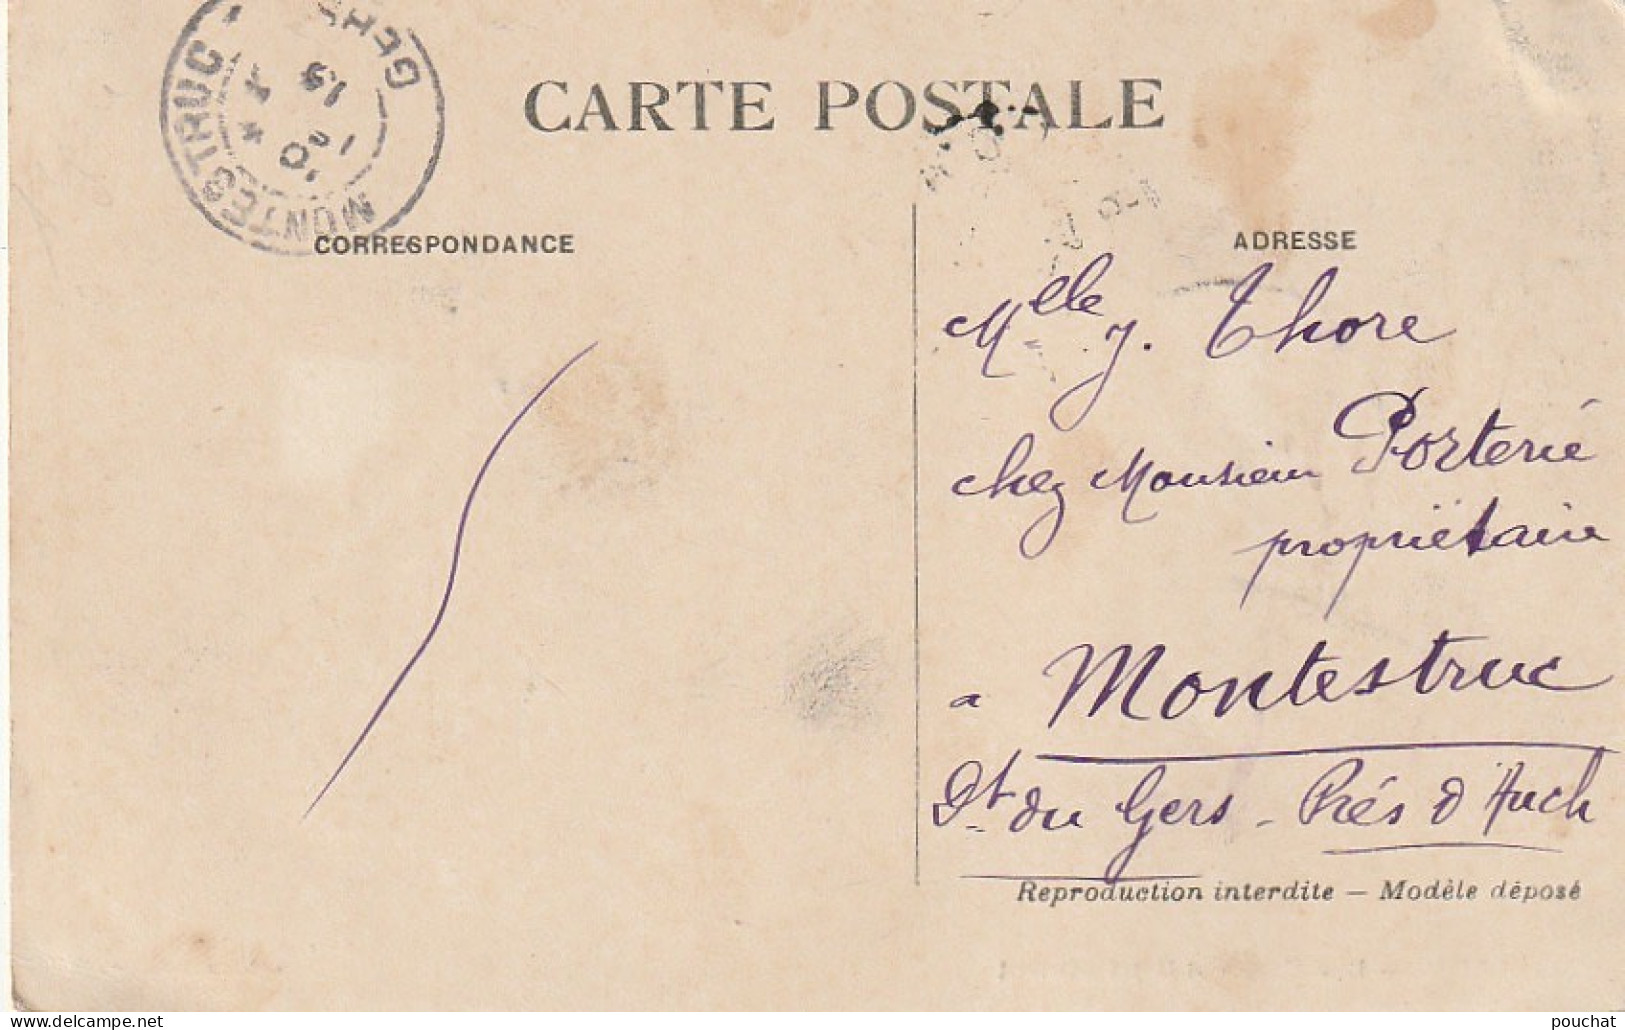 CARTE POSTALE
MONTESTRUC GERS
CORRESPONDANCE
ADRESSE
Mlle J. Thore
chez Monsieur Porterié
propriétaire
a Montestruc
Dt du Gers - Prés d'Auch
Reproduction interdite — Modèle déposé
delcampe.net
pouchat